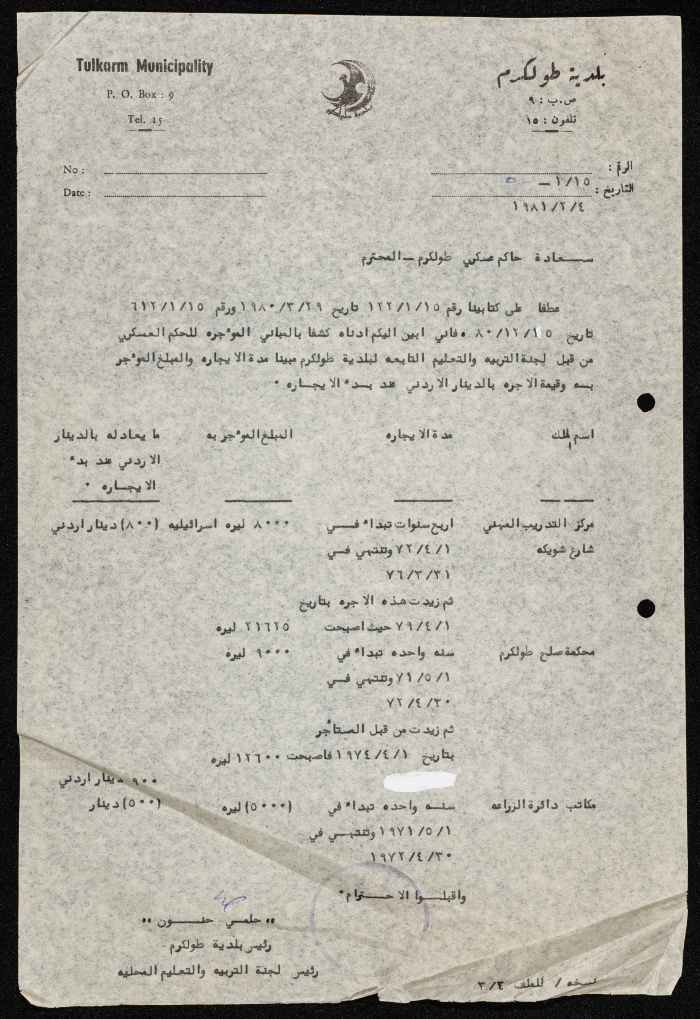 Tulkarm Municipality
P. O. Box : 9
Tel. 15
بلدية طولكرم
ص.ب : ٩
تلفون : ١٥
No :
Date :
الرقم :
١/١٥ —
التاريخ :
١٩٨١/٢/٤
ســعادة حاكم عسكري طولكرم – المحترم
عطفا على كتابينا رقم ١٢٢/١/١٥ تاريخ ١٩٨٠/٣/٢٩ ورقم ٦١٢/١/١٥
تاريخ ٨٠/١٢/١٥ ، فاني ابين اليكم ادناه كشفا بالمباني الموءجره للحكم العسكري
من قبل لجنة التربيه والتعليم التابعه لبلدية طولكرم مبينا مدة الايجاره والمبلغ الموءجر
بـه وقيمة الاجره بالدينار الاردني عند بـدء الايجـاره .
اسم الملك مدة الايجاره المبلغ الموءجر به ما يعادله بالدينار
الاردني عند بدء
الايجـاره .
مركز التدريب المهني اربع سنوات تبداء فـــي ٨٠٠٠ ليره اسرائيليه (٨٠٠) دينار اردني
شارع شويكه ٧٢/٤/١ وتنتهي فــي
٧٦/٣/٣١
ثم زيدت هذه الاجره بتاريخ
٧٩/٤/١ حيث اصبحت ٢١٦٢٥ ليره
محكمة صلح طولكرم سنه واحده تبداء في ٩٠٠٠ ليره
٧١/٥/١ وتنتهي فــي
٧٢/٤/٣٠
ثم زيدت من قبل المستأجر
بتاريخ ١٩٧٤/٤/١ فاصبحت ١٢٦٠٠ ليره
٩٠٠ دينار اردني
مكاتب دائرة الزراعه سنـه واحده تبداء في (٥٠٠٠) ليره (٥٠٠) دينار
١٩٧١/٥/١ وتنتهـي في
١٩٧٢/٤/٣٠
واقبلــوا الاحــترام .
" حلمـي حنــون "
رئيس بلدية طولكرم
رئيس لجنة التربيه والتعليم المحليه
نسخه / للملف ٣/٣